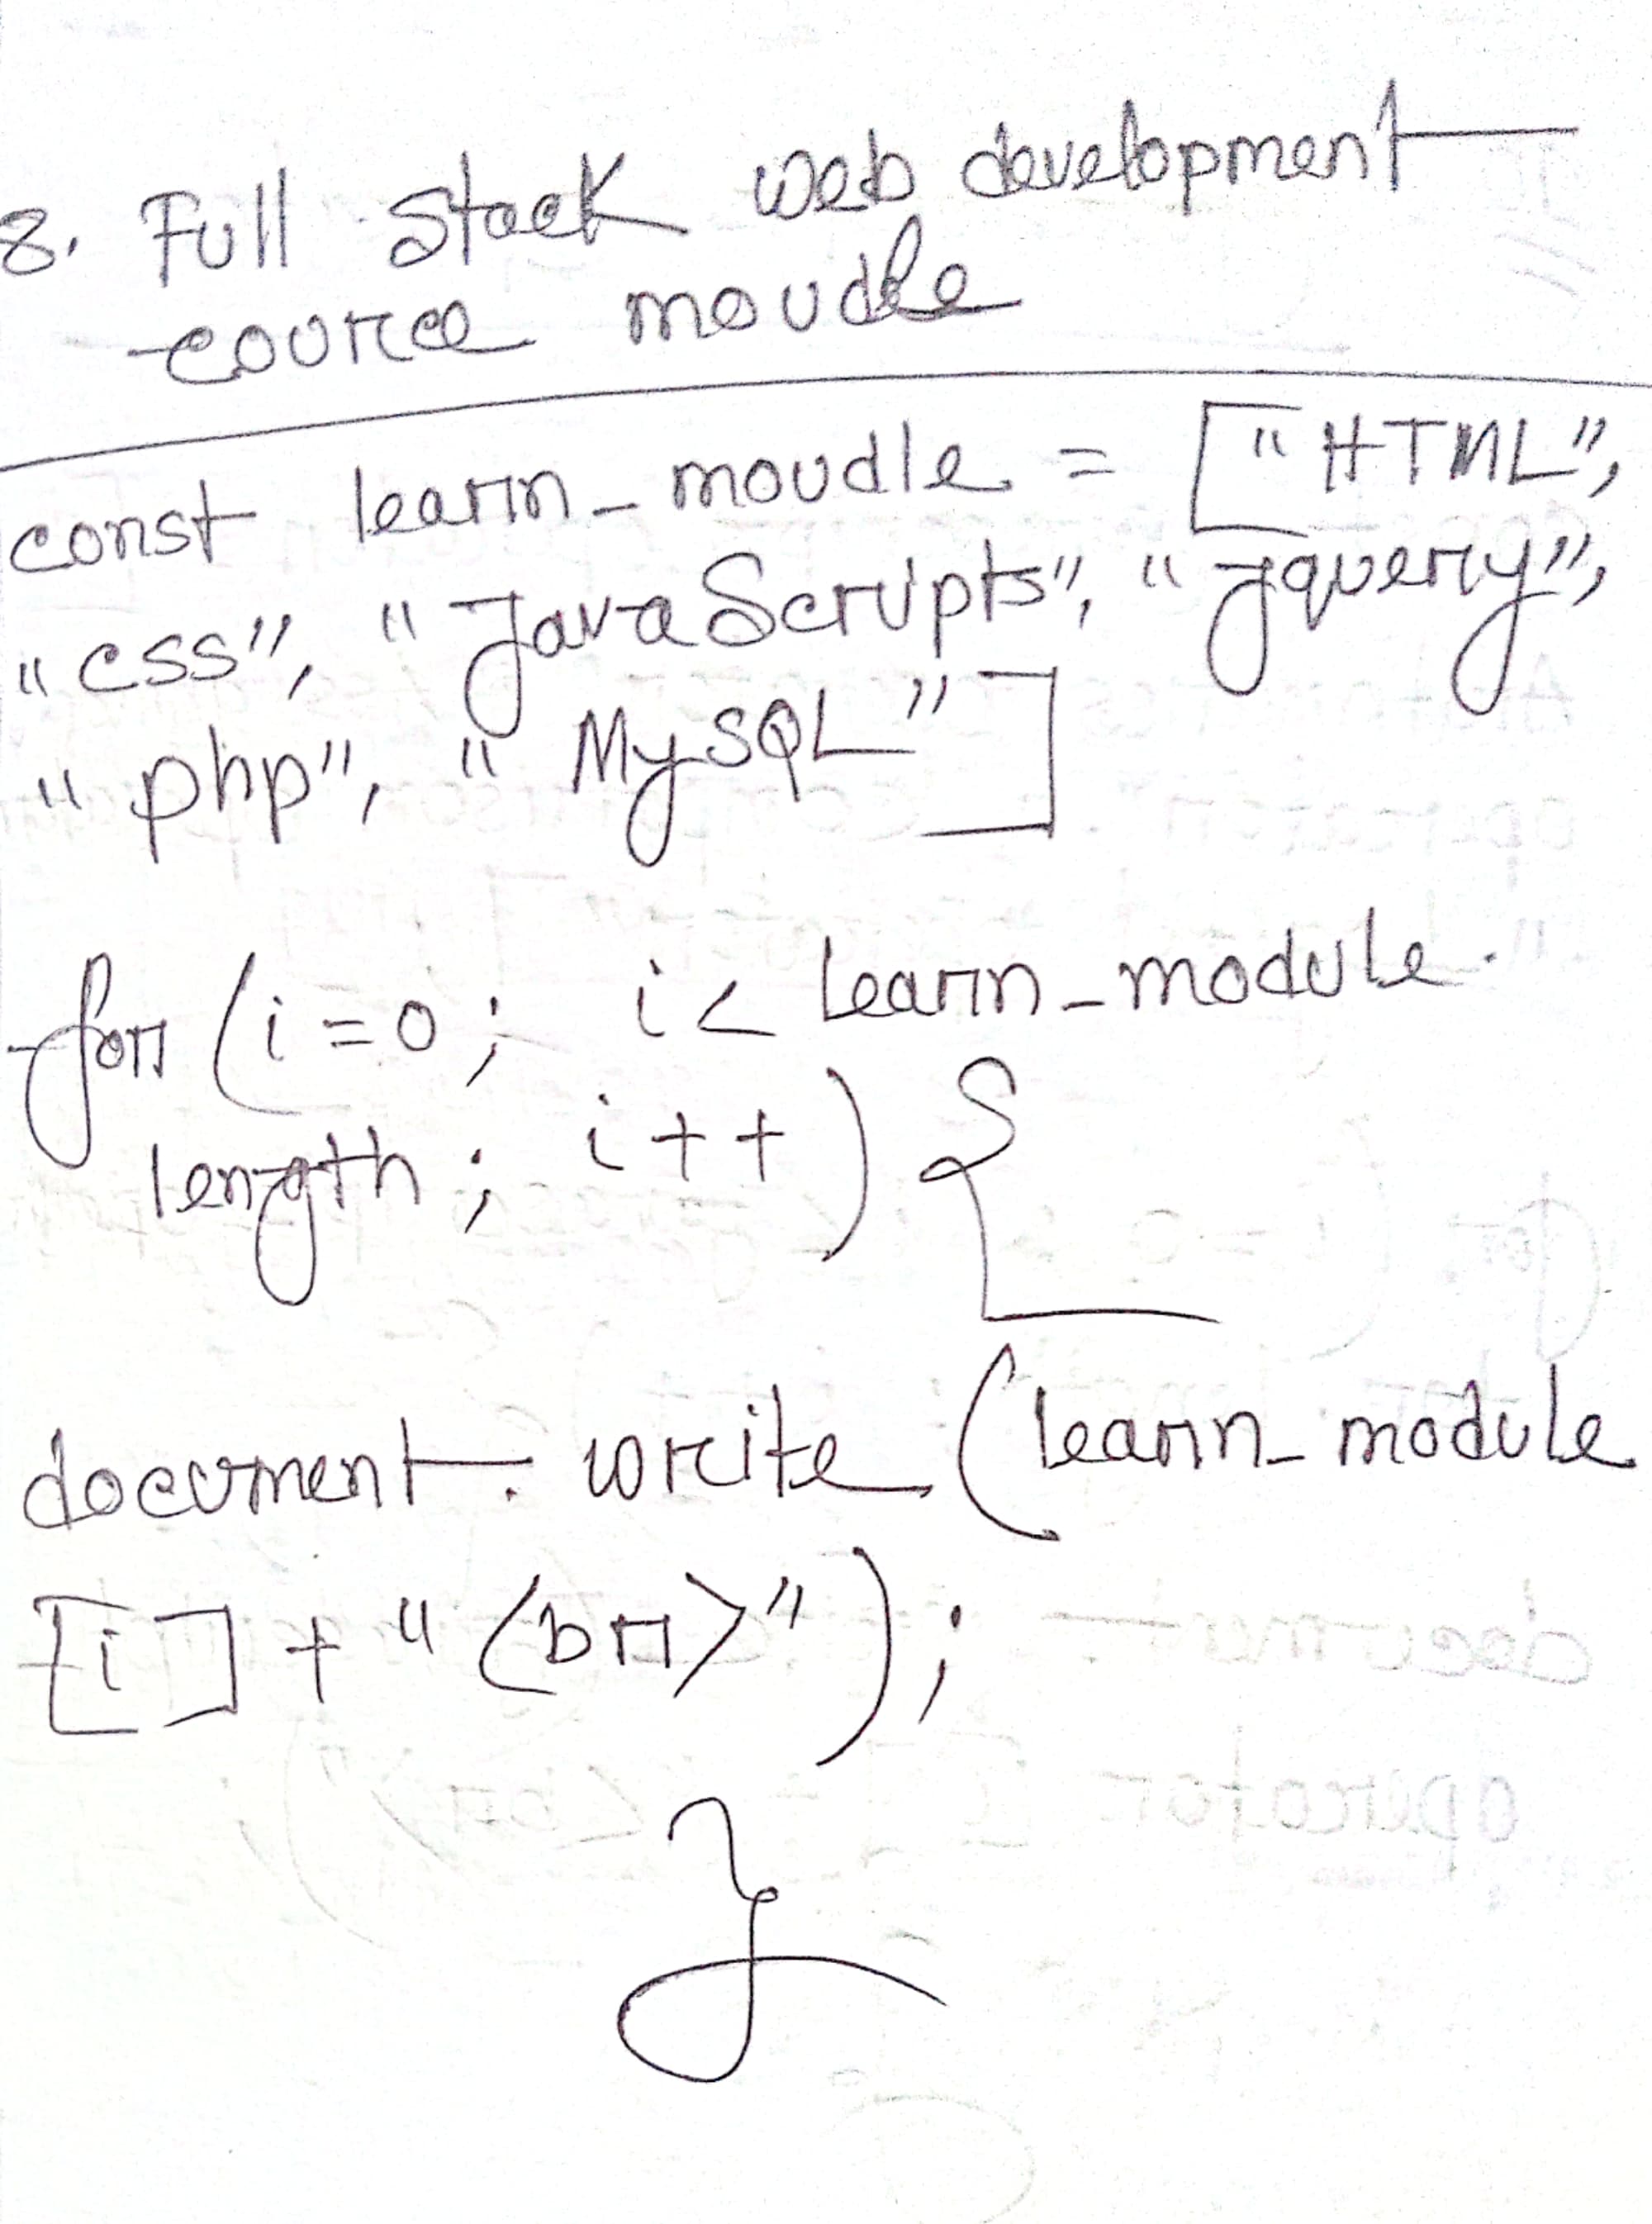 8. Full Stack web development
cource moudle
const learn_moudle = ["HTML",
"css", "JavaScripts", "Jquery",
"php", "MySQL"]
for (i=0; i< learn_module.
length; i++) {
document. write (learn_module
[i] + "<br>");
}